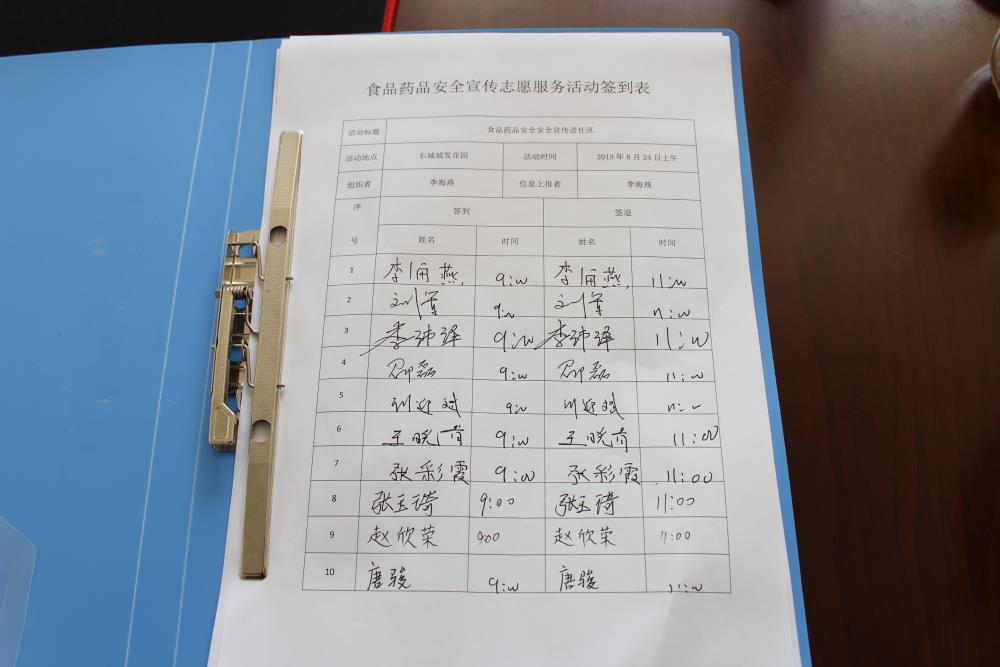 食品药品安全宣传志愿服务活动签到表
活动标题 食品药品安全安全宣传进社区
活动地点 东城城发花园 活动时间 2019年8月24日上午
组织者 李海燕 信息上报者 李海燕
序号 签到 签退
姓名 时间 姓名 时间
1 李海燕 9:00 李海燕 11:00
2 刘军 9:00 刘军 11:00
3 李沛泽 9:00 李沛泽 11:00
4 磊 9:00 磊 11:00
5 斌 9:00 斌 11:00
6 王晓 9:00 王晓 11:00
7 张彩霞 9:00 张彩霞 11:00
8 张玉琦 9:00 张玉琦 11:00
9 赵欣荣 9:00 赵欣荣 11:00
10 唐骏 9:00 唐骏 11:00